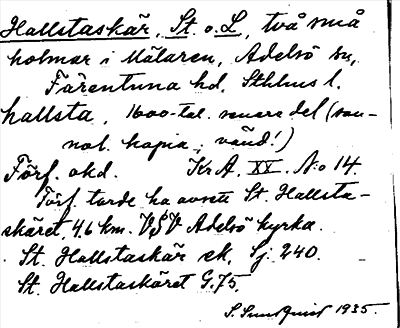 Hallstaskär, St. o. L., två små
holmar i Mälaren, Adelsö sn,
Färentuna hd, Sthlms l.
hallsta, 1600-tal. senare del (san-
nol. kopia; vänd!)
Förf. okd. KrA XX. N:o 14.
Förf. torde ha avsett St. Hallsta-
skäret, 4,6 km. VSV Adelsö kyrka.
St. Hallstaskär ek. Sj. 240.
St. Hallstaskäret G.75.
S. Sundquist 1935.